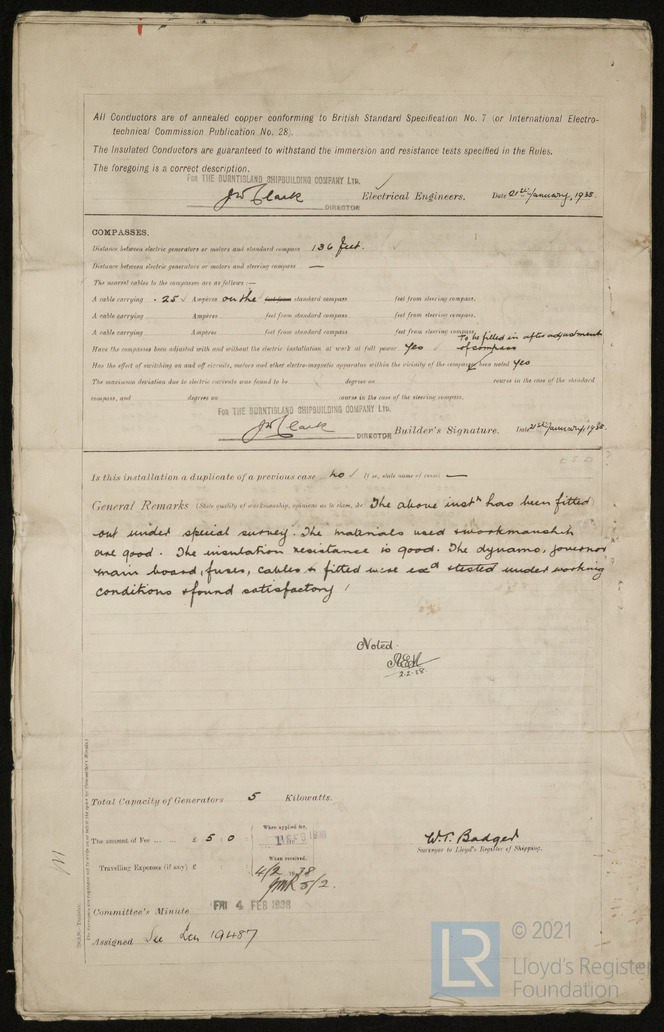 All Conductors are of annealed copper conforming to British Standard Specification No. 7 (or International Electro-
technical Commission Publication No. 28).
The Insulated Conductors are guaranteed to withstand the immersion and resistance tests specified in the Rules.
The foregoing is a correct description.
FOR THE BURNTISLAND SHIPBUILDING COMPANY LTD.
JW Clark Electrical Engineers. Date 21st January, 1938.
DIRECTOR
COMPASSES.
Distance between electric generators or motors and standard compass 136 feet.
Distance between electric generators or motors and steering compass —
The nearest cables to the compasses are as follows:—
A cable carrying .25 Ampères on the feet from standard compass feet from steering compass.
A cable carrying Ampères feet from standard compass feet from steering compass.
A cable carrying Ampères feet from standard compass feet from steering compass.
To be filled in after adjustment
Have the compasses been adjusted with and without the electric installation at work at full power Yes of compass
Has the effect of switching on and off circuits, motors and other electro-magnetic apparatus within the vicinity of the compasses been noted Yes
The maximum deviation due to electric currents was found to be degrees on course in the case of the standard
compass, and degrees on course in the case of the steering compass.
FOR THE BURNTISLAND SHIPBUILDING COMPANY LTD.
JW Clark Builder's Signature. Date 21st January, 1938.
DIRECTOR
Is this installation a duplicate of a previous case no If so, state name of vessel —
General Remarks (State quality of workmanship, opinions as to them, &c.) The above instn has been fitted
out under special survey. The materials used & workmanship
are good. The insulation resistance is good. The dynamo, governor
main board, fuses, cables & fitted were exd & tested under working
conditions & found satisfactory
Noted.
2.2.38.
Total Capacity of Generators 5 Kilowatts.
The amount of Fee ... ... £ 5 : 0 : When applied for,
Travelling Expenses (if any) £ : : When received,
4/2 1938
5/2.
W.T. Badger
Surveyor to Lloyd's Register of Shipping.
Committee's Minute FRI 4 FEB 1938
Assigned See 19487
LR
© 2021
Lloyd's Register
Foundation